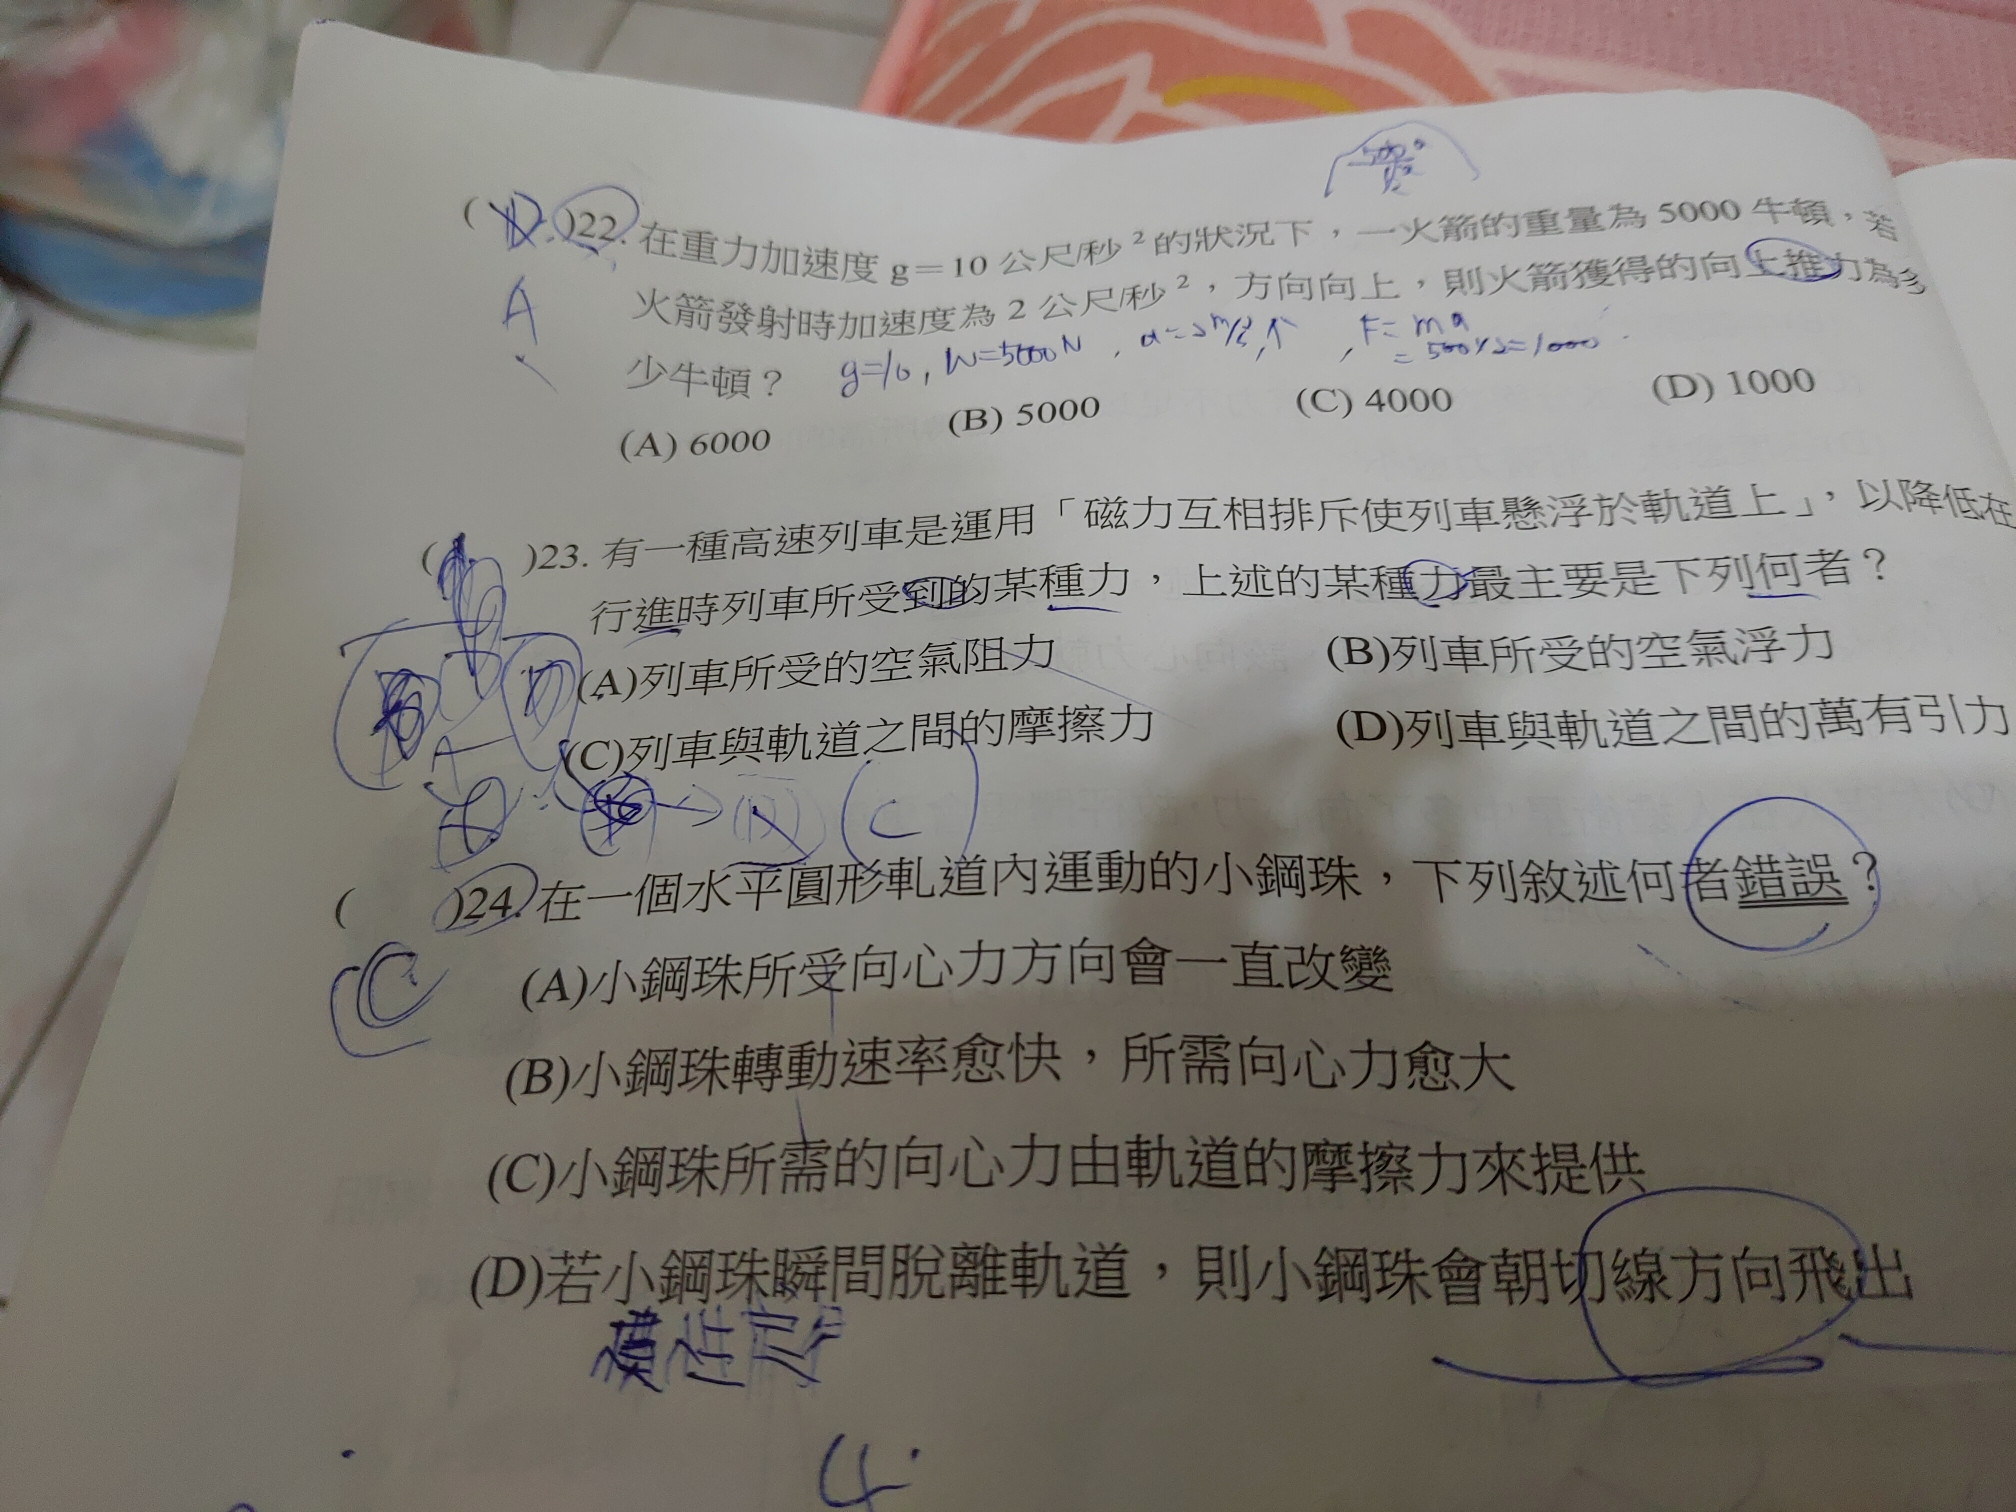 )22. 在重力加速度 g＝10 公尺/秒²的狀況下，一火箭的重量為 5000 牛頓，若
A 火箭發射時加速度為 2 公尺/秒²，方向向上，則火箭獲得的向上推力為多
少牛頓？ g=10, W=5000N, a=2m/s², ↑, F=ma
=500×2=1000
(A) 6000 (B) 5000 (C) 4000 (D) 1000
( )23. 有一種高速列車是運用「磁力互相排斥使列車懸浮於軌道上」，以降低在
行進時列車所受到的某種力，上述的某種力最主要是下列何者？
(A)列車所受的空氣阻力 (B)列車所受的空氣浮力
(C)列車與軌道之間的摩擦力 (D)列車與軌道之間的萬有引力
C
( )24. 在一個水平圓形軌道內運動的小鋼珠，下列敘述何者錯誤？
C (A)小鋼珠所受向心力方向會一直改變
(B)小鋼珠轉動速率愈快，所需向心力愈大
(C)小鋼珠所需的向心力由軌道的摩擦力來提供
(D)若小鋼珠瞬間脫離軌道，則小鋼珠會朝切線方向飛出
4